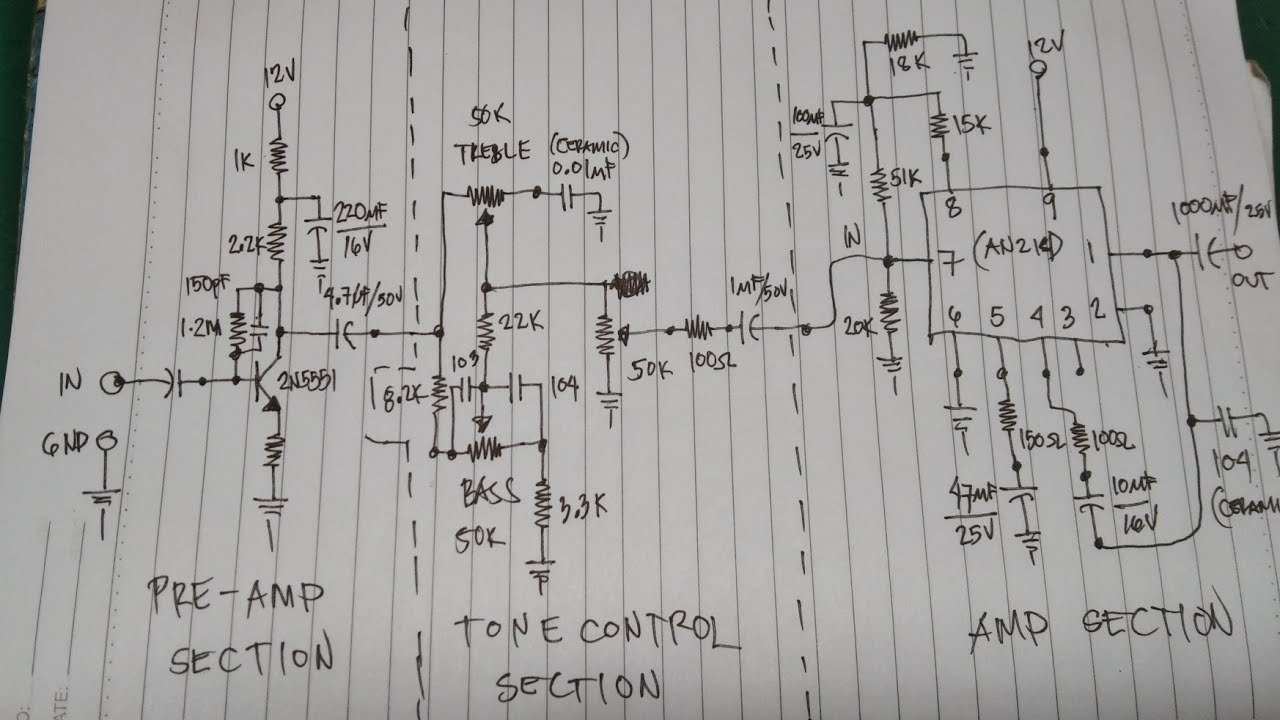 12V
1K
220MF/16V
2.2K
150pF
1.2M
4.7µF/50V
IN
2N5551
GND
PRE-AMP
SECTION
50K
TREBLE
(CERAMIC)
0.01MF
22K
103
104
8.2K
BASS
50K
3.3K
50K
100Ω
1MF/50V
TONE CONTROL
SECTION
18K
12V
100MF/25V
15K
51K
IN
20K
8
9
7
1
6
5
4
3
2
1000MF/25V
OUT
150Ω
100Ω
47MF/25V
10MF/16V
104
AMP SECTION